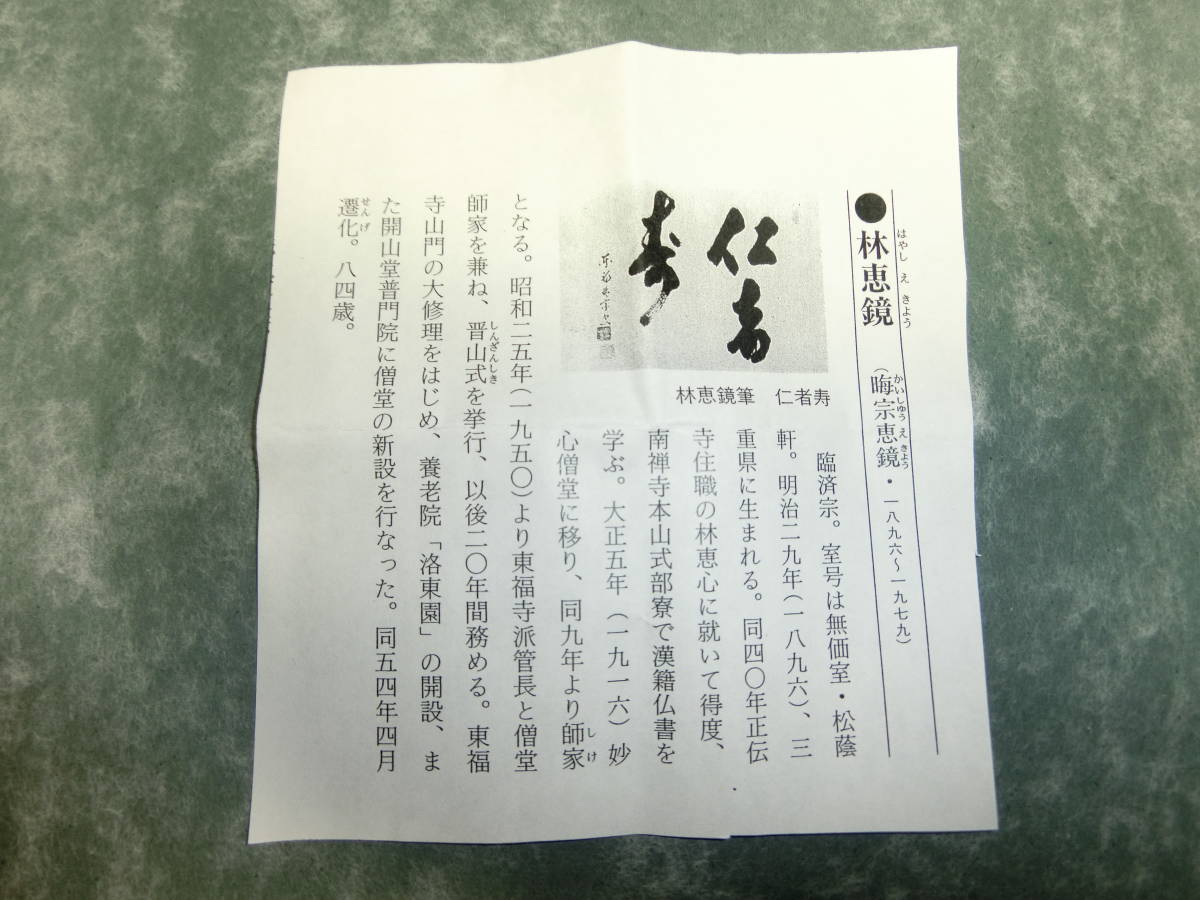 ●林恵鏡（晦宗恵鏡・一八九六～一九七九）
はやし え きよう
かいしゆう え きよう
臨済宗。室号は無価室・松蔭
軒。明治二九年（一八九六）、三
重県に生まれる。同四〇年正伝
寺住職の林恵心に就いて得度、
南禅寺本山式部寮で漢籍仏書を
学ぶ。大正五年（一九一六）妙
心僧堂に移り、同九年より師家
しけ
となる。昭和二五年（一九五〇）より東福寺派管長と僧堂
師家を兼ね、晋山式を挙行、以後二〇年間務める。東福
しんざんしき
寺山門の大修理をはじめ、養老院「洛東園」の開設、ま
た開山堂普門院に僧堂の新設を行なった。同五四年四月
遷化。八四歳。
せんげ
仁者
寿
林恵鏡筆　仁者寿